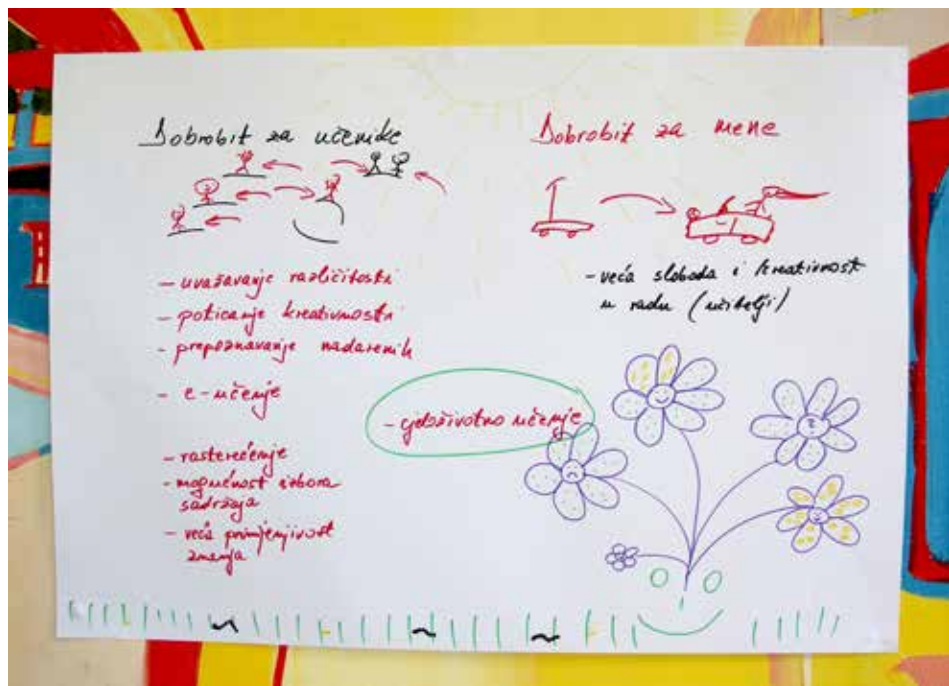 Dobrobit za učenike
- uvažavanje različitosti
- poticanje kreativnosti
- prepoznavanje nadarenih
- e-učenje
- rasterećenje
- mogućnost izbora
sadržaja
- veća primjenjivost
znanja
- cjeloživotno učenje
Dobrobit za mene
- veća sloboda i kreativnost
u radu (učitelji)